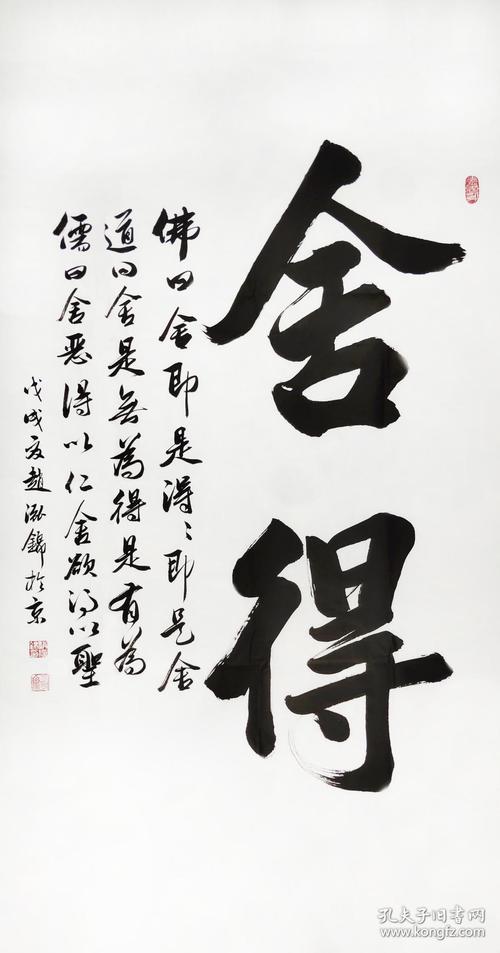 舍得
佛曰舍即是得〻即是舍
道曰舍是无為得是有為
儒曰舍惡得以仁舍欲得以聖
戊戌夏趙泓錦於京
孔夫子旧书网
www.kongfz.com